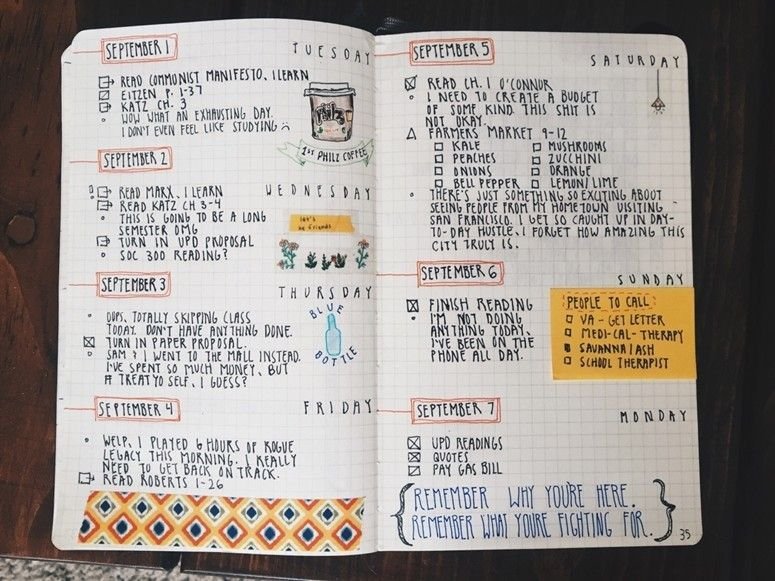 SEPTEMBER 1
TUESDAY
READ COMMUNIST MANIFESTO, ILEARN
EITZEN P. 1-37
KATZ CH. 3
WOW WHAT AN EXHAUSTING DAY.
I DON'T EVEN FEEL LIKE STUDYING
Philz
1ST PHILZ COFFEE
SEPTEMBER 2
WEDNESDAY
READ MARX, ILEARN
READ KATZ CH 3-4
THIS IS GOING TO BE A LONG
SEMESTER OMG
TURN IN UPD PROPOSAL
SOC 300 READING?
let's
be friends
SEPTEMBER 3
THURSDAY
OOPS. TOTALLY SKIPPING CLASS
TODAY. DON'T HAVE ANYTHING DONE.
TURN IN PAPER PROPOSAL.
SAM & I WENT TO THE MALL INSTEAD.
I'VE SPENT SO MUCH MONEY, BUT
# TREAT YO SELF, I GUESS?
BLUE
BOTTLE
SEPTEMBER 4
FRIDAY
WELP, I PLAYED 6 HOURS OF ROGUE
LEGACY THIS MORNING. I REALLY
NEED TO GET BACK ON TRACK.
READ ROBERTS 1-26
SEPTEMBER 5
SATURDAY
READ CH. 1 O'CONNOR
I NEED TO CREATE A BUDGET
OF SOME KIND. THIS SHIT IS
NOT OKAY.
FARMERS MARKET 9-12
KALE
PEACHES
ONIONS
BELL PEPPER
MUSHROOMS
ZUCCHINI
ORANGE
LEMON/LIME
THERE'S JUST SOMETHING SO EXCITING ABOUT
SEEING PEOPLE FROM MY HOMETOWN VISITING
SAN FRANCISCO. I GET SO CAUGHT UP IN DAY-
TO-DAY HUSTLE. I FORGET HOW AMAZING THIS
CITY TRULY IS.
SEPTEMBER 6
SUNDAY
FINISH READING
I'M NOT DOING
ANYTHING TODAY.
I'VE BEEN ON THE
PHONE ALL DAY.
PEOPLE TO CALL
VA - GET LETTER
MEDI-CAL-THERAPY
SAVANNA/ASH
SCHOOL THERAPIST
SEPTEMBER 7
MONDAY
UPD READINGS
QUOTES
PAY GAS BILL
REMEMBER WHY YOU'RE HERE.
REMEMBER WHAT YOU'RE FIGHTING FOR.
35